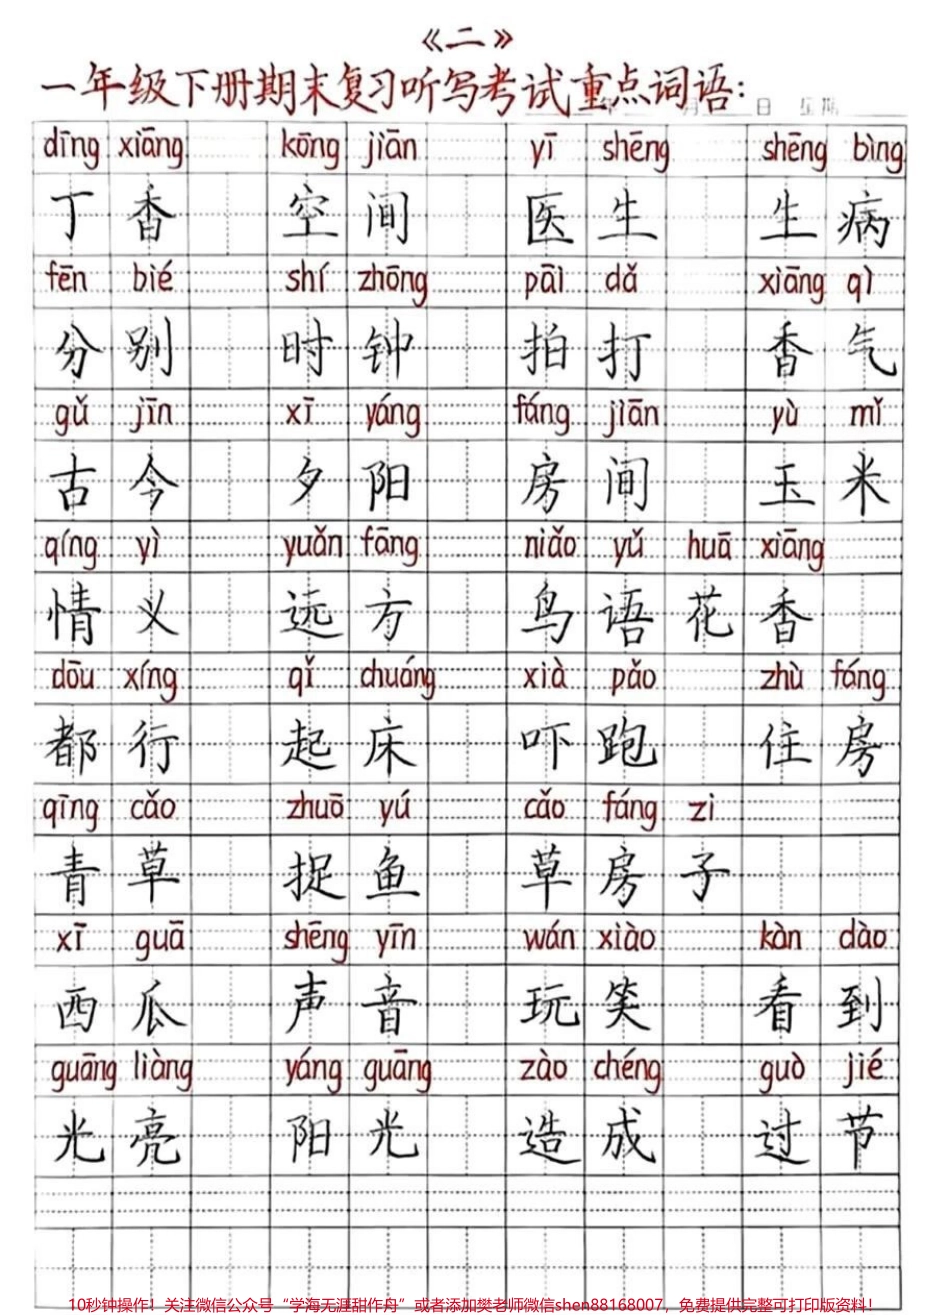 《二》
一年级下册期末复习听写考试重点词语：
日 星期
dīng xiāng kōng jiān yī shēng shēng bìng
丁香 空间 医生 生病
fēn bié shí zhōng pāi dǎ xiāng qì
分别 时钟 拍打 香气
gǔ jīn xī yáng fáng jiān yù mǐ
古今 夕阳 房间 玉米
qíng yì yuǎn fāng niǎo yǔ huā xiāng
情义 远方 鸟语花香
dōu xíng qǐ chuáng xià pǎo zhù fáng
都行 起床 吓跑 住房
qīng cǎo zhuō yú cǎo fáng zi
青草 捉鱼 草房子
xī guā shēng yīn wán xiào kàn dào
西瓜 声音 玩笑 看到
guāng liàng yáng guāng zào chéng guò jié
光亮 阳光 造成 过节
10秒钟操作！关注微信公众号“学海无涯甜作丹”或者添加樊老师微信shen88168007，免费提供完整可打印版资料！